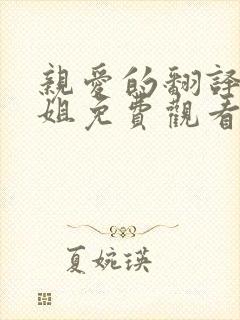 親愛的翻譯
姐免費觀看
夏婉瑛